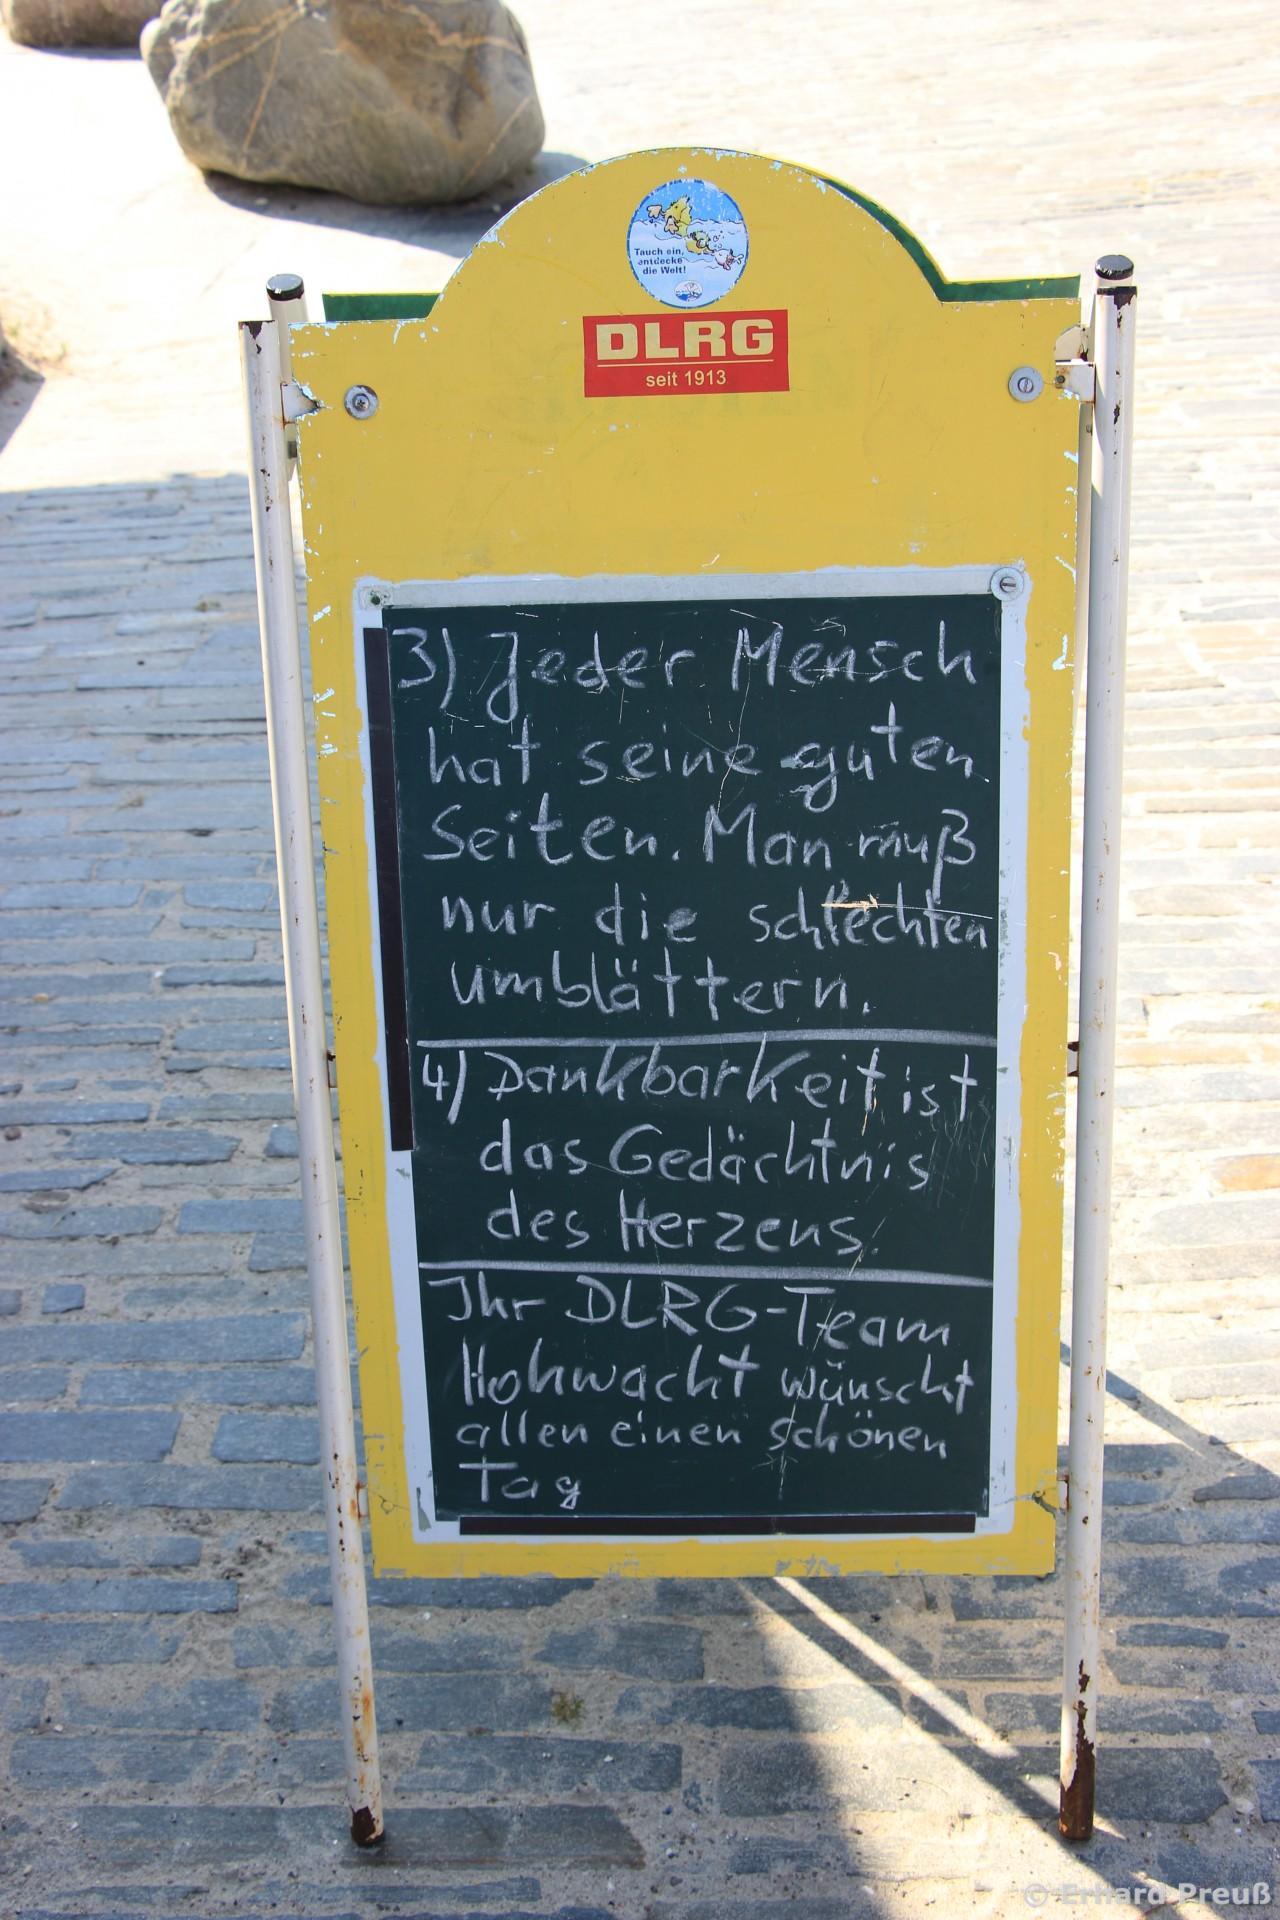 Tauch ein,
entdecke
die Welt!
DLRG
seit 1913
3) Jeder Mensch
hat seine guten
Seiten. Man muß
nur die schlechten
umblättern.
4) Dankbarkeit ist
das Gedächtnis
des Herzens.
Ihr DLRG-Team
Hohwacht wünscht
allen einen schönen
Tag
© Erhard Preuß